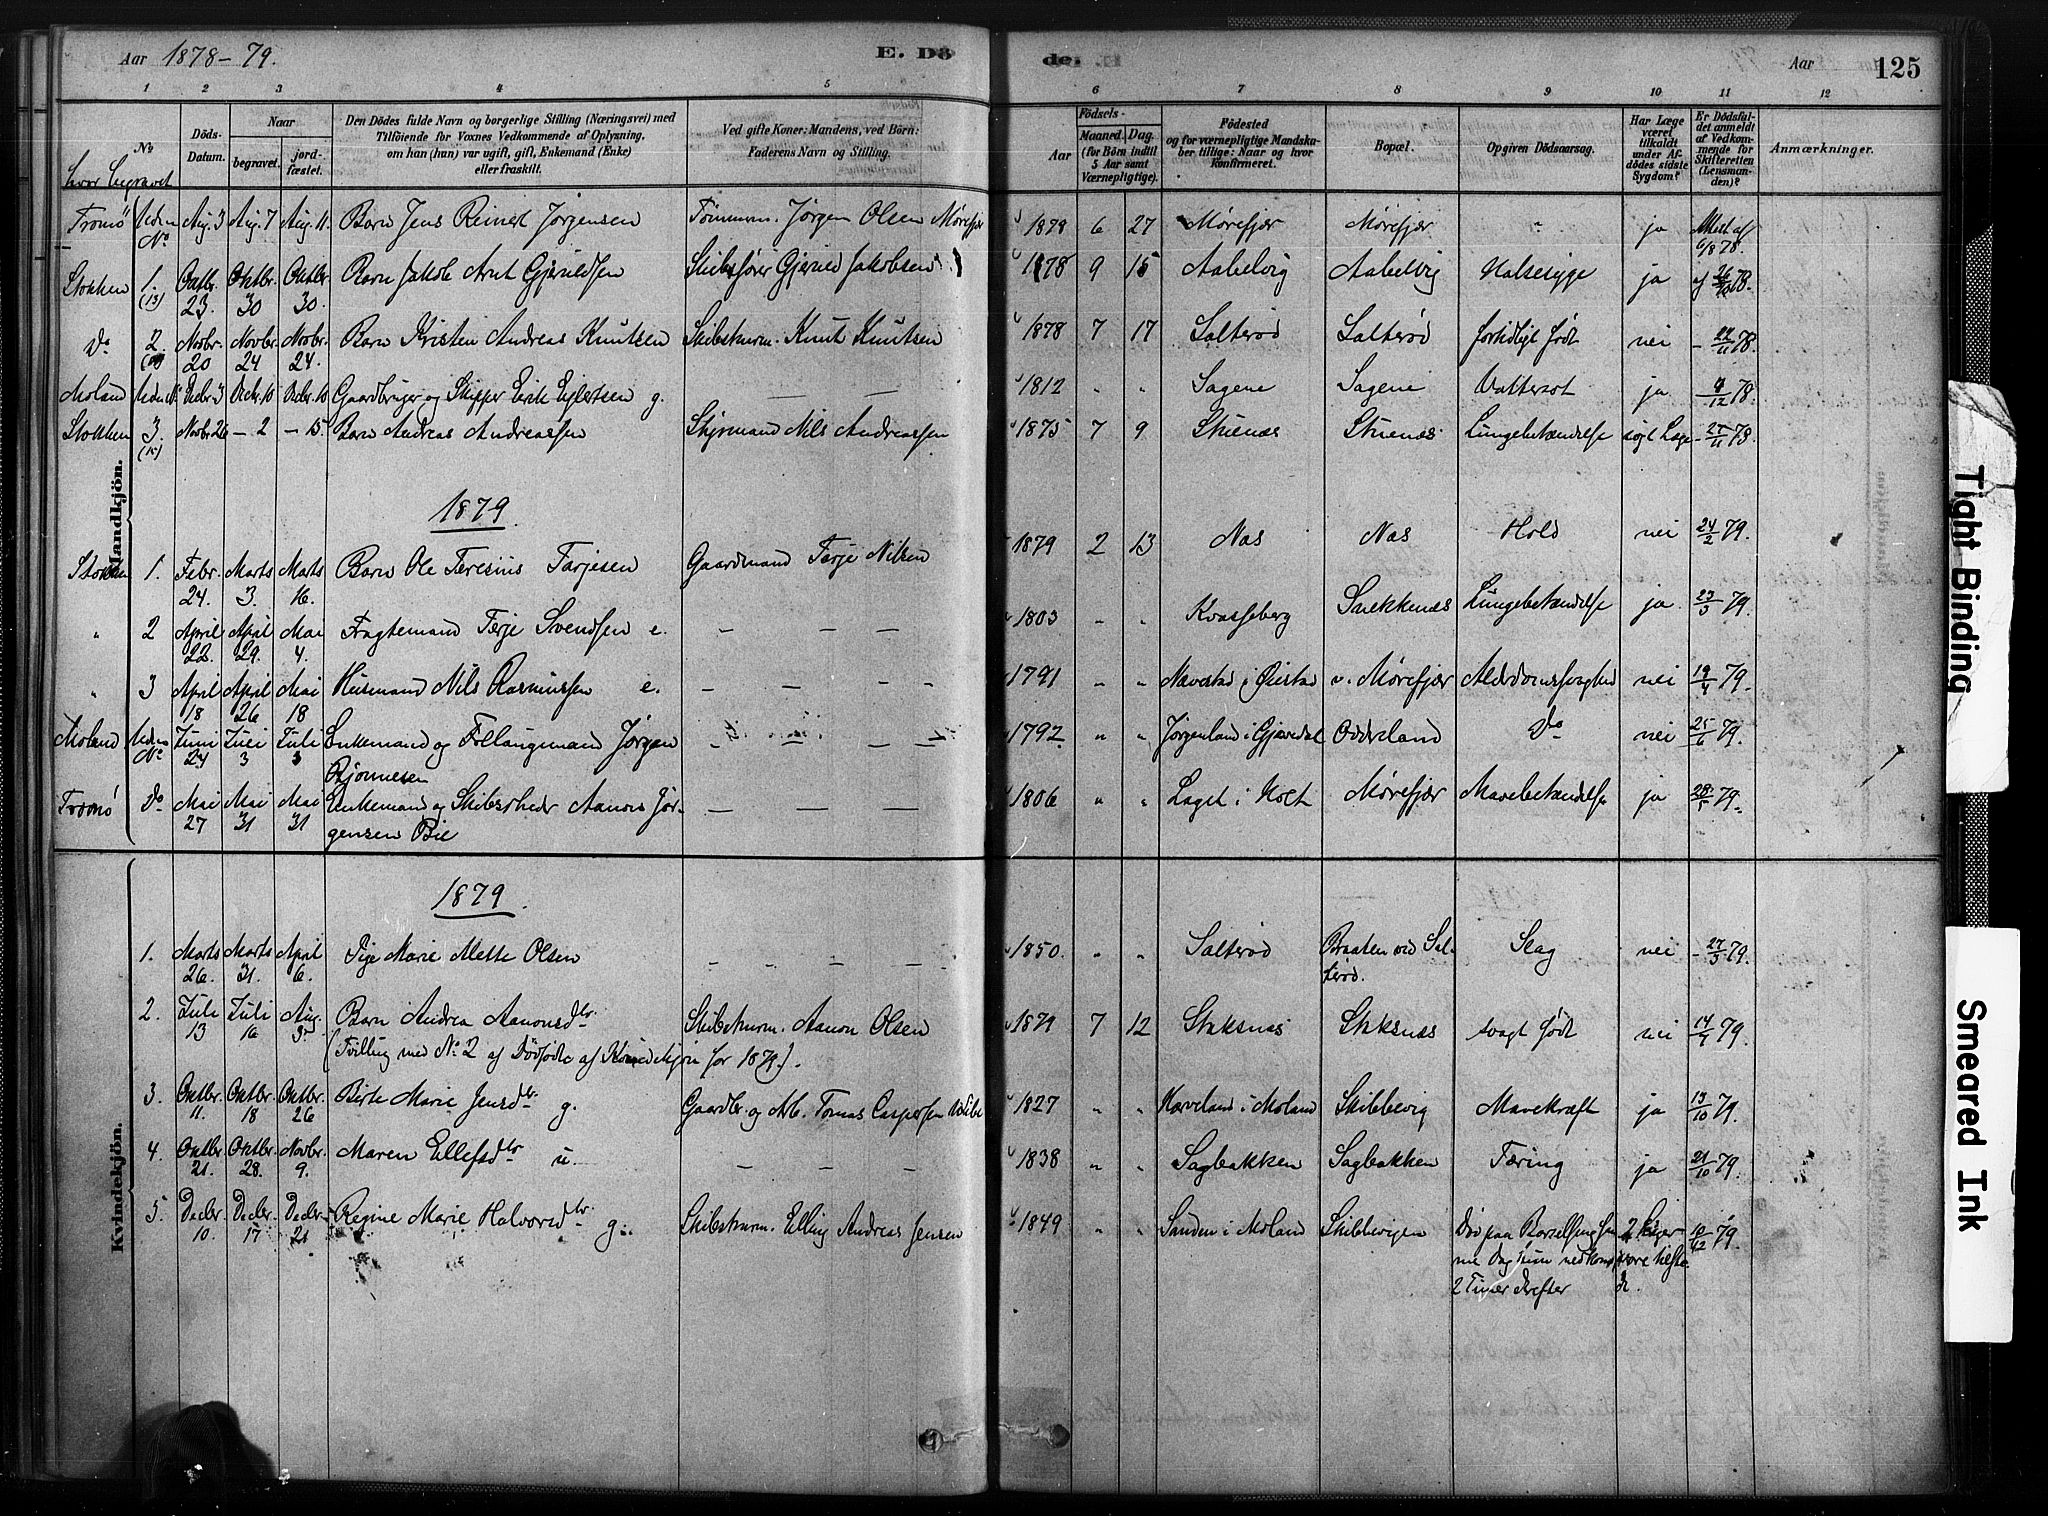 Aar 1878-79. E. Dö
de. Aar 125
1 2 3 4 5 6 7 8 9 10 11 12
No
hvor begravet
Döds-Datum.
Naar
begravet.
jord-fæstet.
Den Dödes fulde Navn og borgerlige Stilling (Næringsvei) med
Tilföiende for Voxnes Vedkommende af Oplysning,
om han (hun) var ugift, gift, Enkemand (Enke)
eller fraskilt.
Ved gifte Koner: Mandens, ved Börn:
Faderens Navn og Stilling.
Födsels-
Aar
Maaned. Dag.
(for Börn indtil
5 Aar samt
Værnepligtige).
Födested
og for værnepligtige Mandska-
ber tillige: Naar og hvor
Konfirmeret.
Bopæl.
Opgiven Dödsaarsag.
Har Læge
været
tilkaldt
under Af-
dödes sidste
Sygdom?
Er Dödsfal-
det anmeldt
af Vedkom-
mende for
Skifteretten
(Lensman-
den)?
Anmærkninger.
Mandkjön.
Tromö Uden No Aug. 3 Aug. 7 Aug. 11. Barn Jens Reinert Jørgensen Tømmerm. Jørgen Olsen Mørefjær 1878 6 27 Mørefjær Mørefjær " ja 6/8 78.
Stokken 1. (13) Oktbr. 23 Oktbr. 30 Oktbr. 30. Barn Jakob Arnt Gjeruldsen Skibsfører Gjeruld Jakobsen 1878 9 15 Aabelvig Aabelvig Halsesyge ja af 26/10 78.
Do 2. Novbr. 20 Novbr. 24 Novbr. 24. Barn Kristen Andreas Knutsen Skibstmrm. Knut Knutsen 1878 7 17 Salterød Salterød fortidligt født nei - 22/11 78.
Moland Uden No Decbr. 3 Decbr. 10 Decbr. 10 Gaardbruger og Skipper Erik Eilertsen g. — — 1812 " " Sagene Sagene Vattersot ja 4/12 78.
Stokken 3. (15) Novbr. 26 — 2 — 15. Barn Andreas Andreassen Styrmand Nils Andreassen 1875 7 9 Stuenæs Stuenæs Lungebetændelse søgt Læge - 27/11 78.
1879
Stokken 1. Febr. 24. Marts 3. Marts 16. Barn Ole Teresius Tarjesen Gaardmand Tarje Nilsen 1879 2 13 Næs Næs Hold nei 24/2 79.
" 2 April 22. April 29. Mai 4. Fragtemand Terje Svendsen e. — — — 1803 " " Kvasseberg Snekkenæs Lungebetændelse ja 23/3 79.
" 3 April 18 April 26 Mai 18 Husmand Nils Rasmussen e. — — — 1791 " " Nævestad i Øiestad v. Mørefjær Alderdomssvaghed nei 19/4 79.
Moland Uden No Juni 24 Juli 3 Juli 3 Enkemand og Føllaugsmand Jørgen
Bjønnesen — — — 1792 " " Jørgenland i Gjerredal Odderland Do nei 25/6 79.
Tromö Do Mai 27 Mai 31 Mai 31 Enkemand og Skibsrheder Aanon Jør-
gensen Bie — — — 1806 " " Laget i Holt Mørefjær Mavebetændelse ja 28/5 79.
Kvindekjön.
1879
1. Marts 26. Marts 31. April 6. Pige Marie Mette Olsen — — — — 1850. " " Salterød Braaten ved Sal-
terød. Slag nei - 27/3 79.
2. Juli 13 Juli 16 Aug. 3. Barn Andrea Aanonsdtr. Skibstmrm. Aanon Olsen 1879 7 12 Staksnæs Staksnæs svagt født nei 14/7 79.
(Tvilling med No 2 af Dødfødte af Kvindekjøn for 1879).
3. Oktbr. 11. Oktbr. 18 Oktbr. 26 Birte Marie Jensdtr. g. Gaardbr. og Tomas Caspersen 1827 " " Haveland i Moland Skibbevig Mavekræft ja 13/10 79.
4. Oktbr. 21. Oktbr. 28. Novbr. 9. Maren Ellefsdtr u. — — — 1838 " " Sagbakken Sagbakken Tæring ja 21/10 79.
5. Decbr. 10. Decbr. 17 Decbr. 21 Regine Marie Halvorsdtr. g. Skibstmrm. Elling Andreas Jensen 1849 " " Sanden i Moland Skibbevigen Død paa Barselseng
2 Timer derefter 2 Læger vare tilste-
de. 10/12 79.
Tight Binding
Smeared Ink